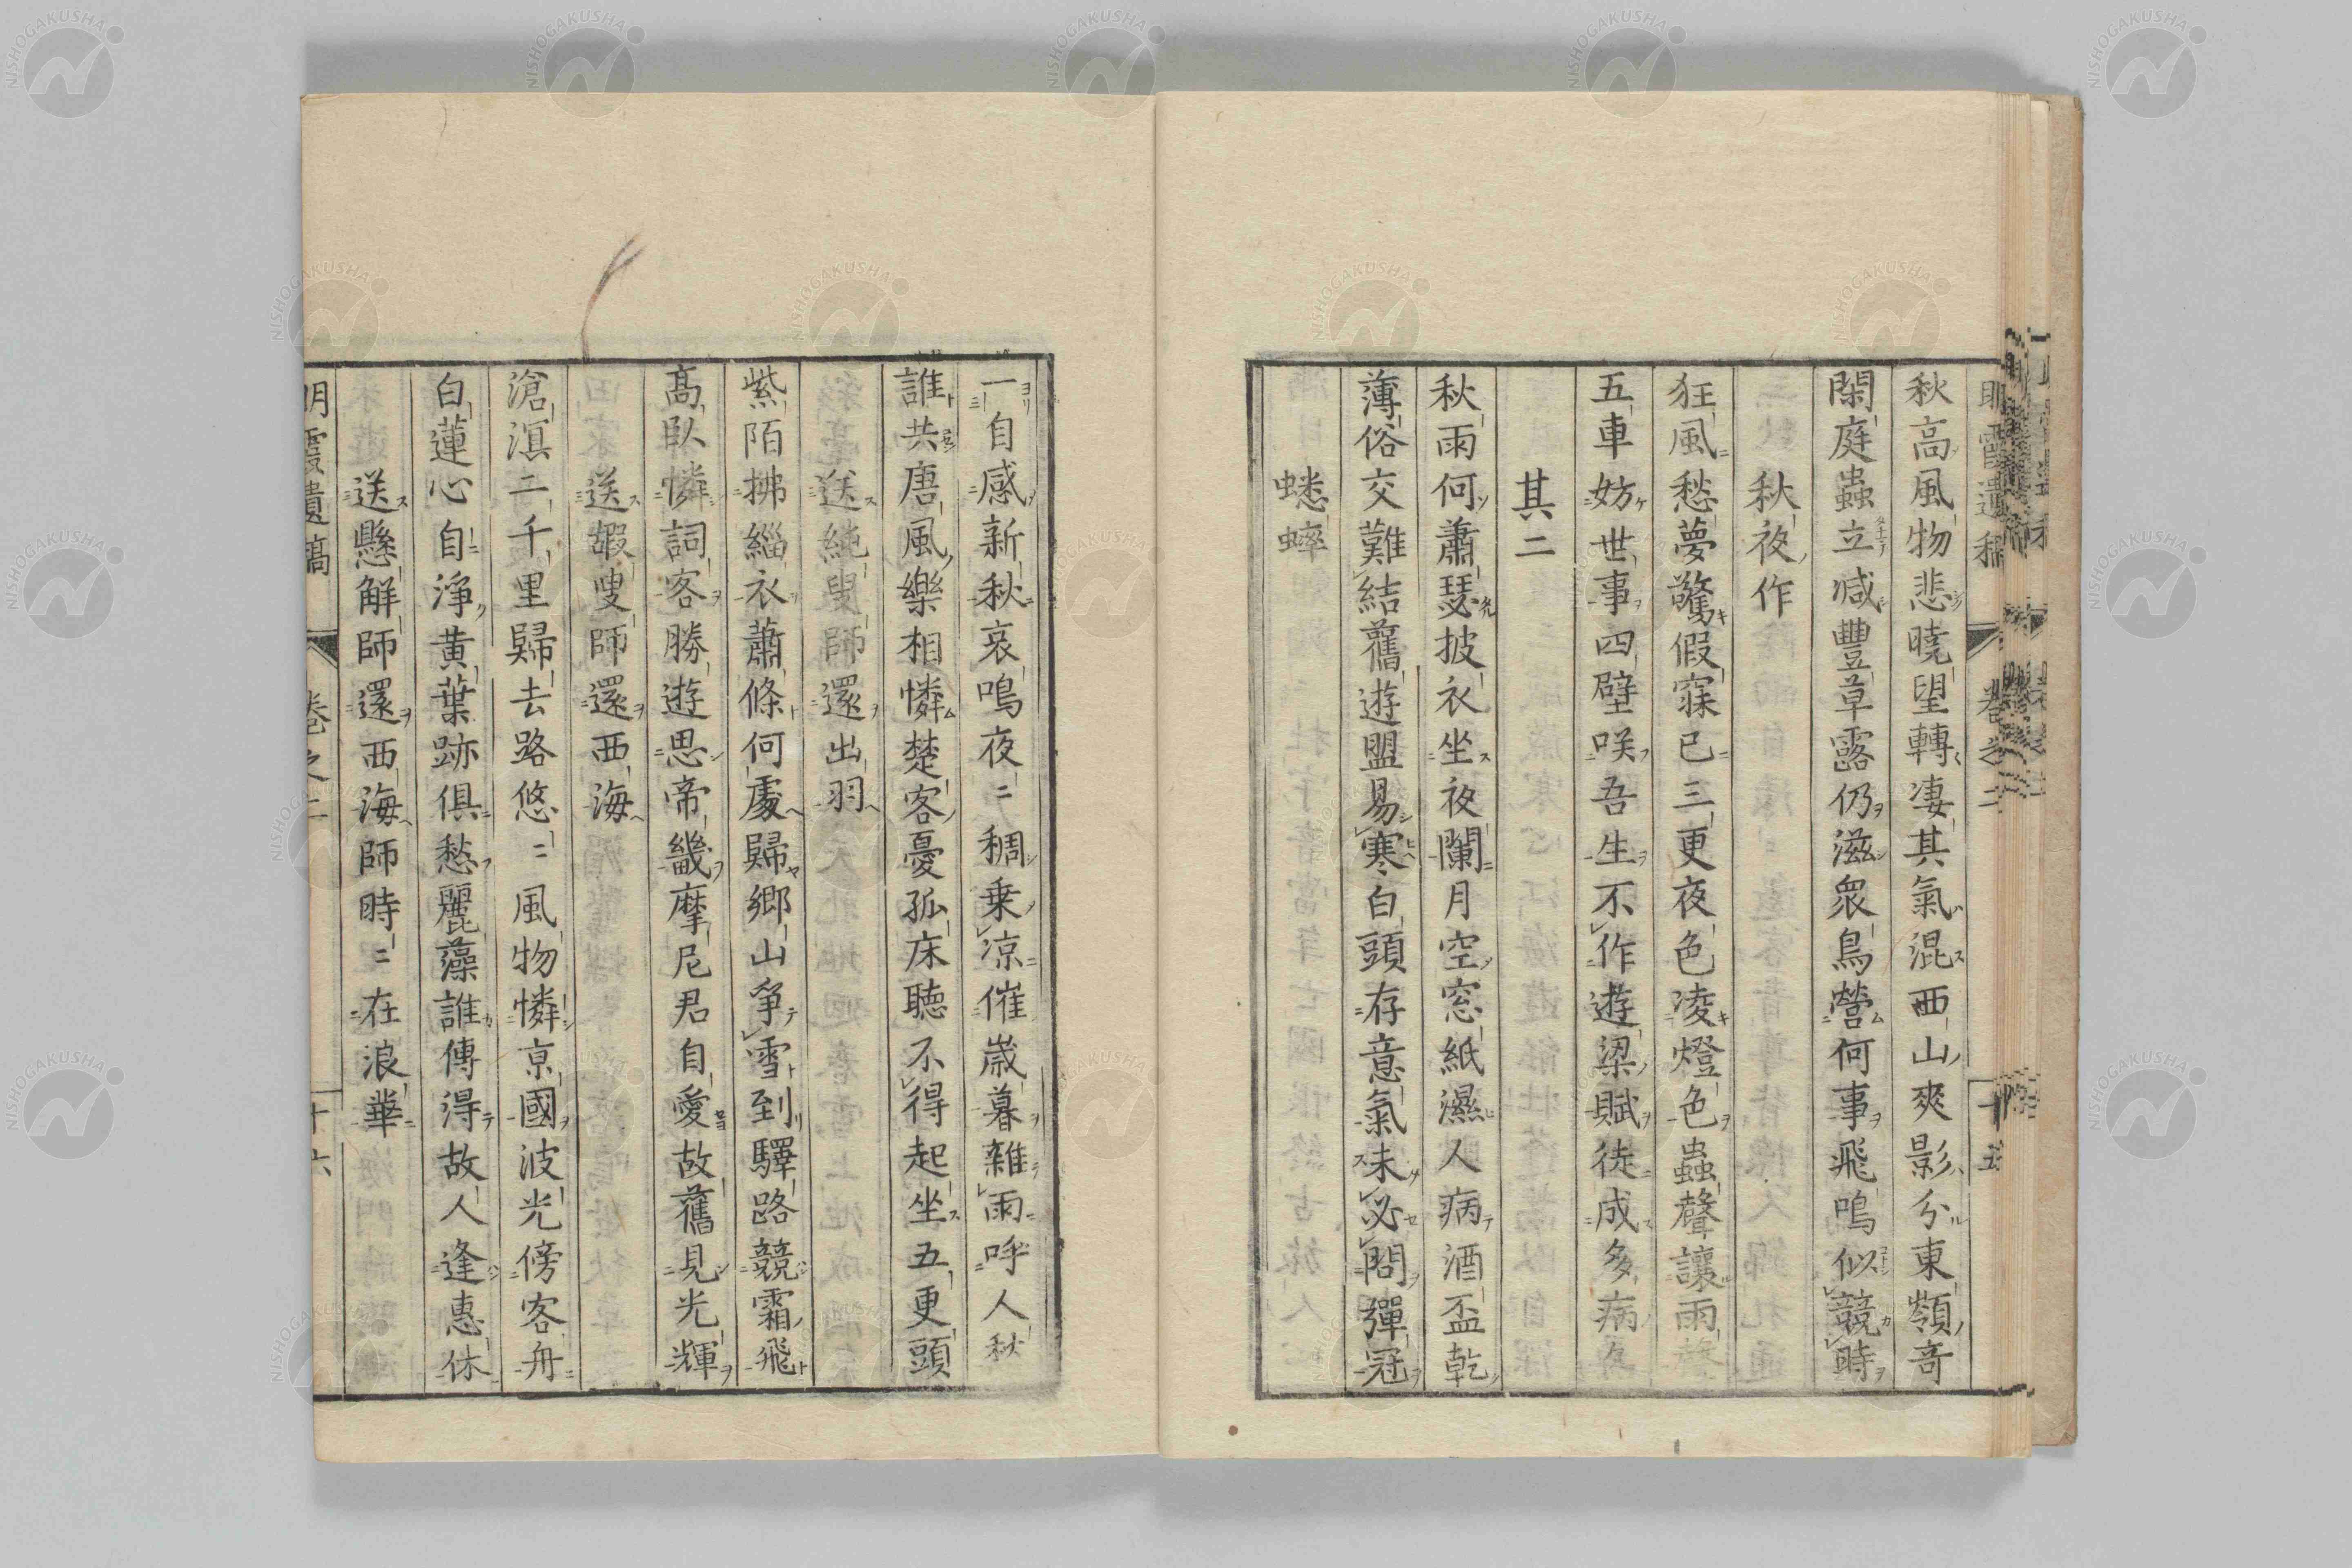 秋高風物悲曉望轉凄其氣混西山爽影分東嶺竒
閑庭蟲立减豐草露仍滋衆鳥營何事飛鳴似競時
秋夜作
狂風愁夢驚假寐已三更夜色凌燈色蟲聲讓雨聲
五車妨世事四壁咲吾生不作遊梁賦徒成多病
其二
秋雨何蕭瑟披衣坐夜闌月空窓紙濕人病酒盃乾
薄俗交難結舊遊盟易寒白頭存意氣未必問彈冠
蟋蟀
一自感新秋哀鳴夜〻稠乗凉催歳暮雜雨呼人秋
誰共唐風樂相憐楚客憂孤床聽不得起坐五更頭
送純叟師還出羽
紫陌拂緇衣蕭條何處歸鄉山爭雪到驛路競霜飛
高臥憐詞客勝遊思帝畿摩尼君自愛故舊見光輝
送嘏叟師還西海
滄溟二千里歸去路悠〻風物憐京國波光傍客舟
白蓮心自淨黄葉跡俱愁麗藻誰傳得故人逢惠休
送懸解師還西海師時〻在浪華
明霞遺稿 卷之二 十六
NISHOGAKUSHA